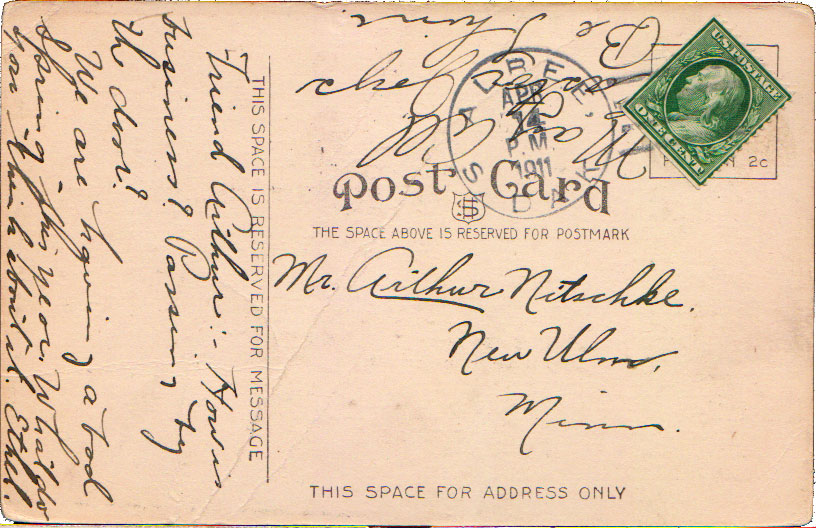 Friend Arthur:- How is
business? Passing by
the door?
We are having a bad
Spring this year. What do
you think about it. Ethel.
THIS SPACE IS RESERVED FOR MESSAGE
May All
Be Thine
ALBEE,
APR
14
P.M.
1911
S. DAK.
U.S. POSTAGE
ONE CENT
2c
Post Card
THE SPACE ABOVE IS RESERVED FOR POSTMARK
Mr. Arthur Nitschke.
New Ulm,
Minn.
THIS SPACE FOR ADDRESS ONLY